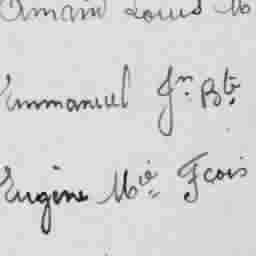 Armand Louis M
Emmanuel Jn. Bte.
Eugène Mie Fcois